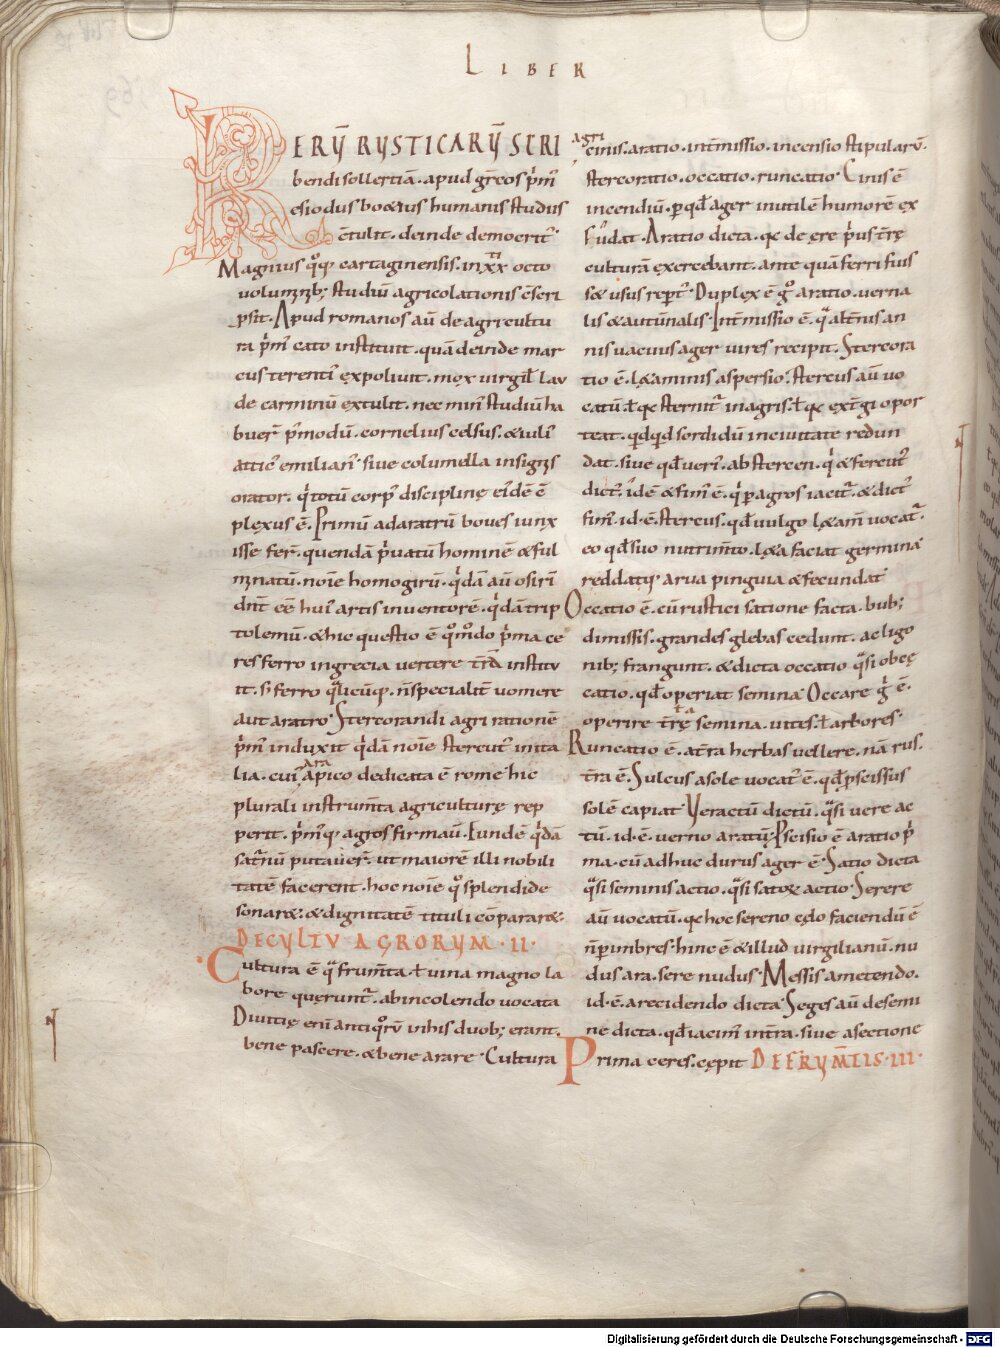 LIBER
RERŪ RVSTICARŪ SCRI
bendi sollertiā. apud grecos prim̄
esiodus boetius humanis studiis
c̄tulit. deinde democrit᷒.
Magnus qͦq; cartaginensis. in xxti octo
voluminib; studiū agricolationis c̄scri
psit. Apud romanos aū de agricultu
ra prim̄ cato instituit. quā deinde mar
cus terenti᷒ expoliuit. mox virgil̄ lau
de carminū extulit. nec min᷒ studiū ha
buer̄ p̄modū. cornelius celsus. & iuli᷒
attic᷒ emilian᷒ siue columella insignis
orator. qͥ totū corp᷒ discipline ei᷒dē c̄
plexus ē. Primū ad aratrū boues iunx
isse fer̄. quendā pͥuatū hominē & ful
minatū. noīe homogirū. qͥdā aū osiri
dn̄t eē hui᷒ artis inventorē. qͥdā trip
tolemū. & hic questio ē qͦmͦdo pͥma ce
res ferro in grecia vertere tr̄ā institu
it. s; ferro qͣlicūq;. n̄ specialit̄ vomere
aut aratro. Stercorandi agri rationē
pͥm᷒ induxit qͥdā noīe stercut᷒ in ita
lia. cui᷒ ara apico dedicata ē rome hic
plurali instrum̄ta agriculturę rep
perit. pͥm᷒q; agros firmau̅. Eundē qͥdā
sat̄niū putauer̄. ut maiorē illi nobili
tatē facerent. hoc noīe qͦ splendide
sonar&. & dignitatē tituli cōparar&.
DE CVLTV AGRORVM. II.
Cultura ē qͣ frum̄ta. ł uina magno la
bore querunt᷒. ab incolendo uocata
Diuitię enī antiqͦrū in his duob; erant.
bene pascere. & bene arare. Cultura
agri
cinis. aratio. int̄missio. incensio stipularū.
stercoratio. occatio. runcatio. Cinis ē
incendiū. ꝑ qđ ager inutilē humorē ex
sudat. Aratio dicta. qc de ęre pͥus t̄rę
culturā exercebant. ante quā ferri fuis
s& usus rept᷒. Duplex ē gͦ aratio. verna
lis & autūnalis. Int̄missio ē. qͣ alt̄nis an
nis uacuus ager uires recipit. Stercora
tio ē. l&aminis aspersio. stercus aū uo
catū. ł qc sternit᷒ in agris. ł qc ext̄gi opor
teat. qͥdqͥd sordidū in ciuitate redun
dat. siue qđ veri᷒. ab stercen. qͥ & stercut᷒
dict᷒. idē & fim᷒ ē. qͥ ꝑ agros iacit᷒. & dict᷒
fim᷒. id. ē. stercus. qđ vulgo l&am̄ vocat᷒.
eo qđ suo nutrim̄to. l&a faciat germina
reddatq; arua pinguia & fecundat
Occatio ē. cū rustici satione facta. bub;
dimissis. grandes glebas cedunt. ac ligo
nib; frangunt. & dicta occatio qͣsi obcę
catio. qđ operiat semina. Occare gͥ ē.
operire t̄rę semina. uites. ł arbores.
Runcatio ē. a t̄ra herbas vellere. nā rus.
t̄ra ē. Sulcus a sole vocat᷒ ē. qđ ꝑscissus
solē capiat. Veractū dictū. qͣsi vere ac
tū. id. ē. verno aratū. Pscisio ē aratio pͥ
ma. cū adhuc durus ager ē. Satio dicta
qͣsi seminis actio. qͣsi sator& actio. Serere
aū vocatū. qc hoc sereno cęlo faciendū ē
n̄ ꝑ imbres. hinc ē & illud virgilianū. nu
dus ara. sere nudus. Messis a metendo.
id. ē. a recidendo dicta. Seges aū de semi
ne dicta. qđ iacim᷒ in t̄ra. siue a sectione
Prima ceres. cępit DE FRVM̄TIS. III.
Digitalisierung gefördert durch die Deutsche Forschungsgemeinschaft - DFG